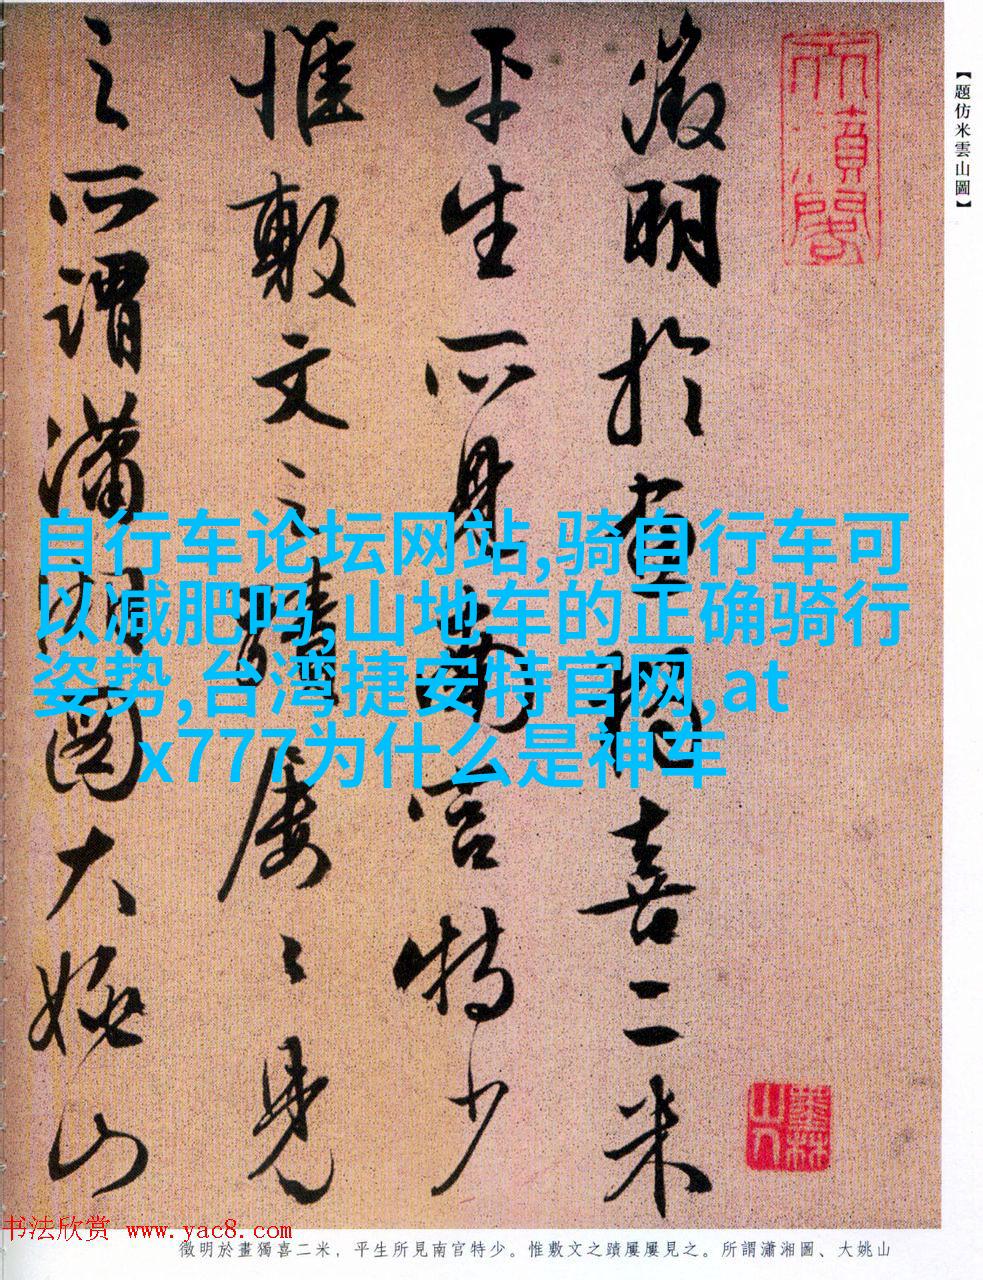 【題仿米雲山圖】
徵明於畫獨喜二米
平生所見南宮特少
惟敷文之蹟屢〻見
之所謂瀟湘圖大姚山
自行车论坛网站,骑自行车可
以减肥吗,山地车的正确骑行
姿势,台湾捷安特官网,at
x777为什么是神车
书法欣赏 www.yac8.com
徵明於畫獨喜二米，平生所見南官特少。惟敷文之蹟屢屢見之。所謂瀟湘圖、大姚山